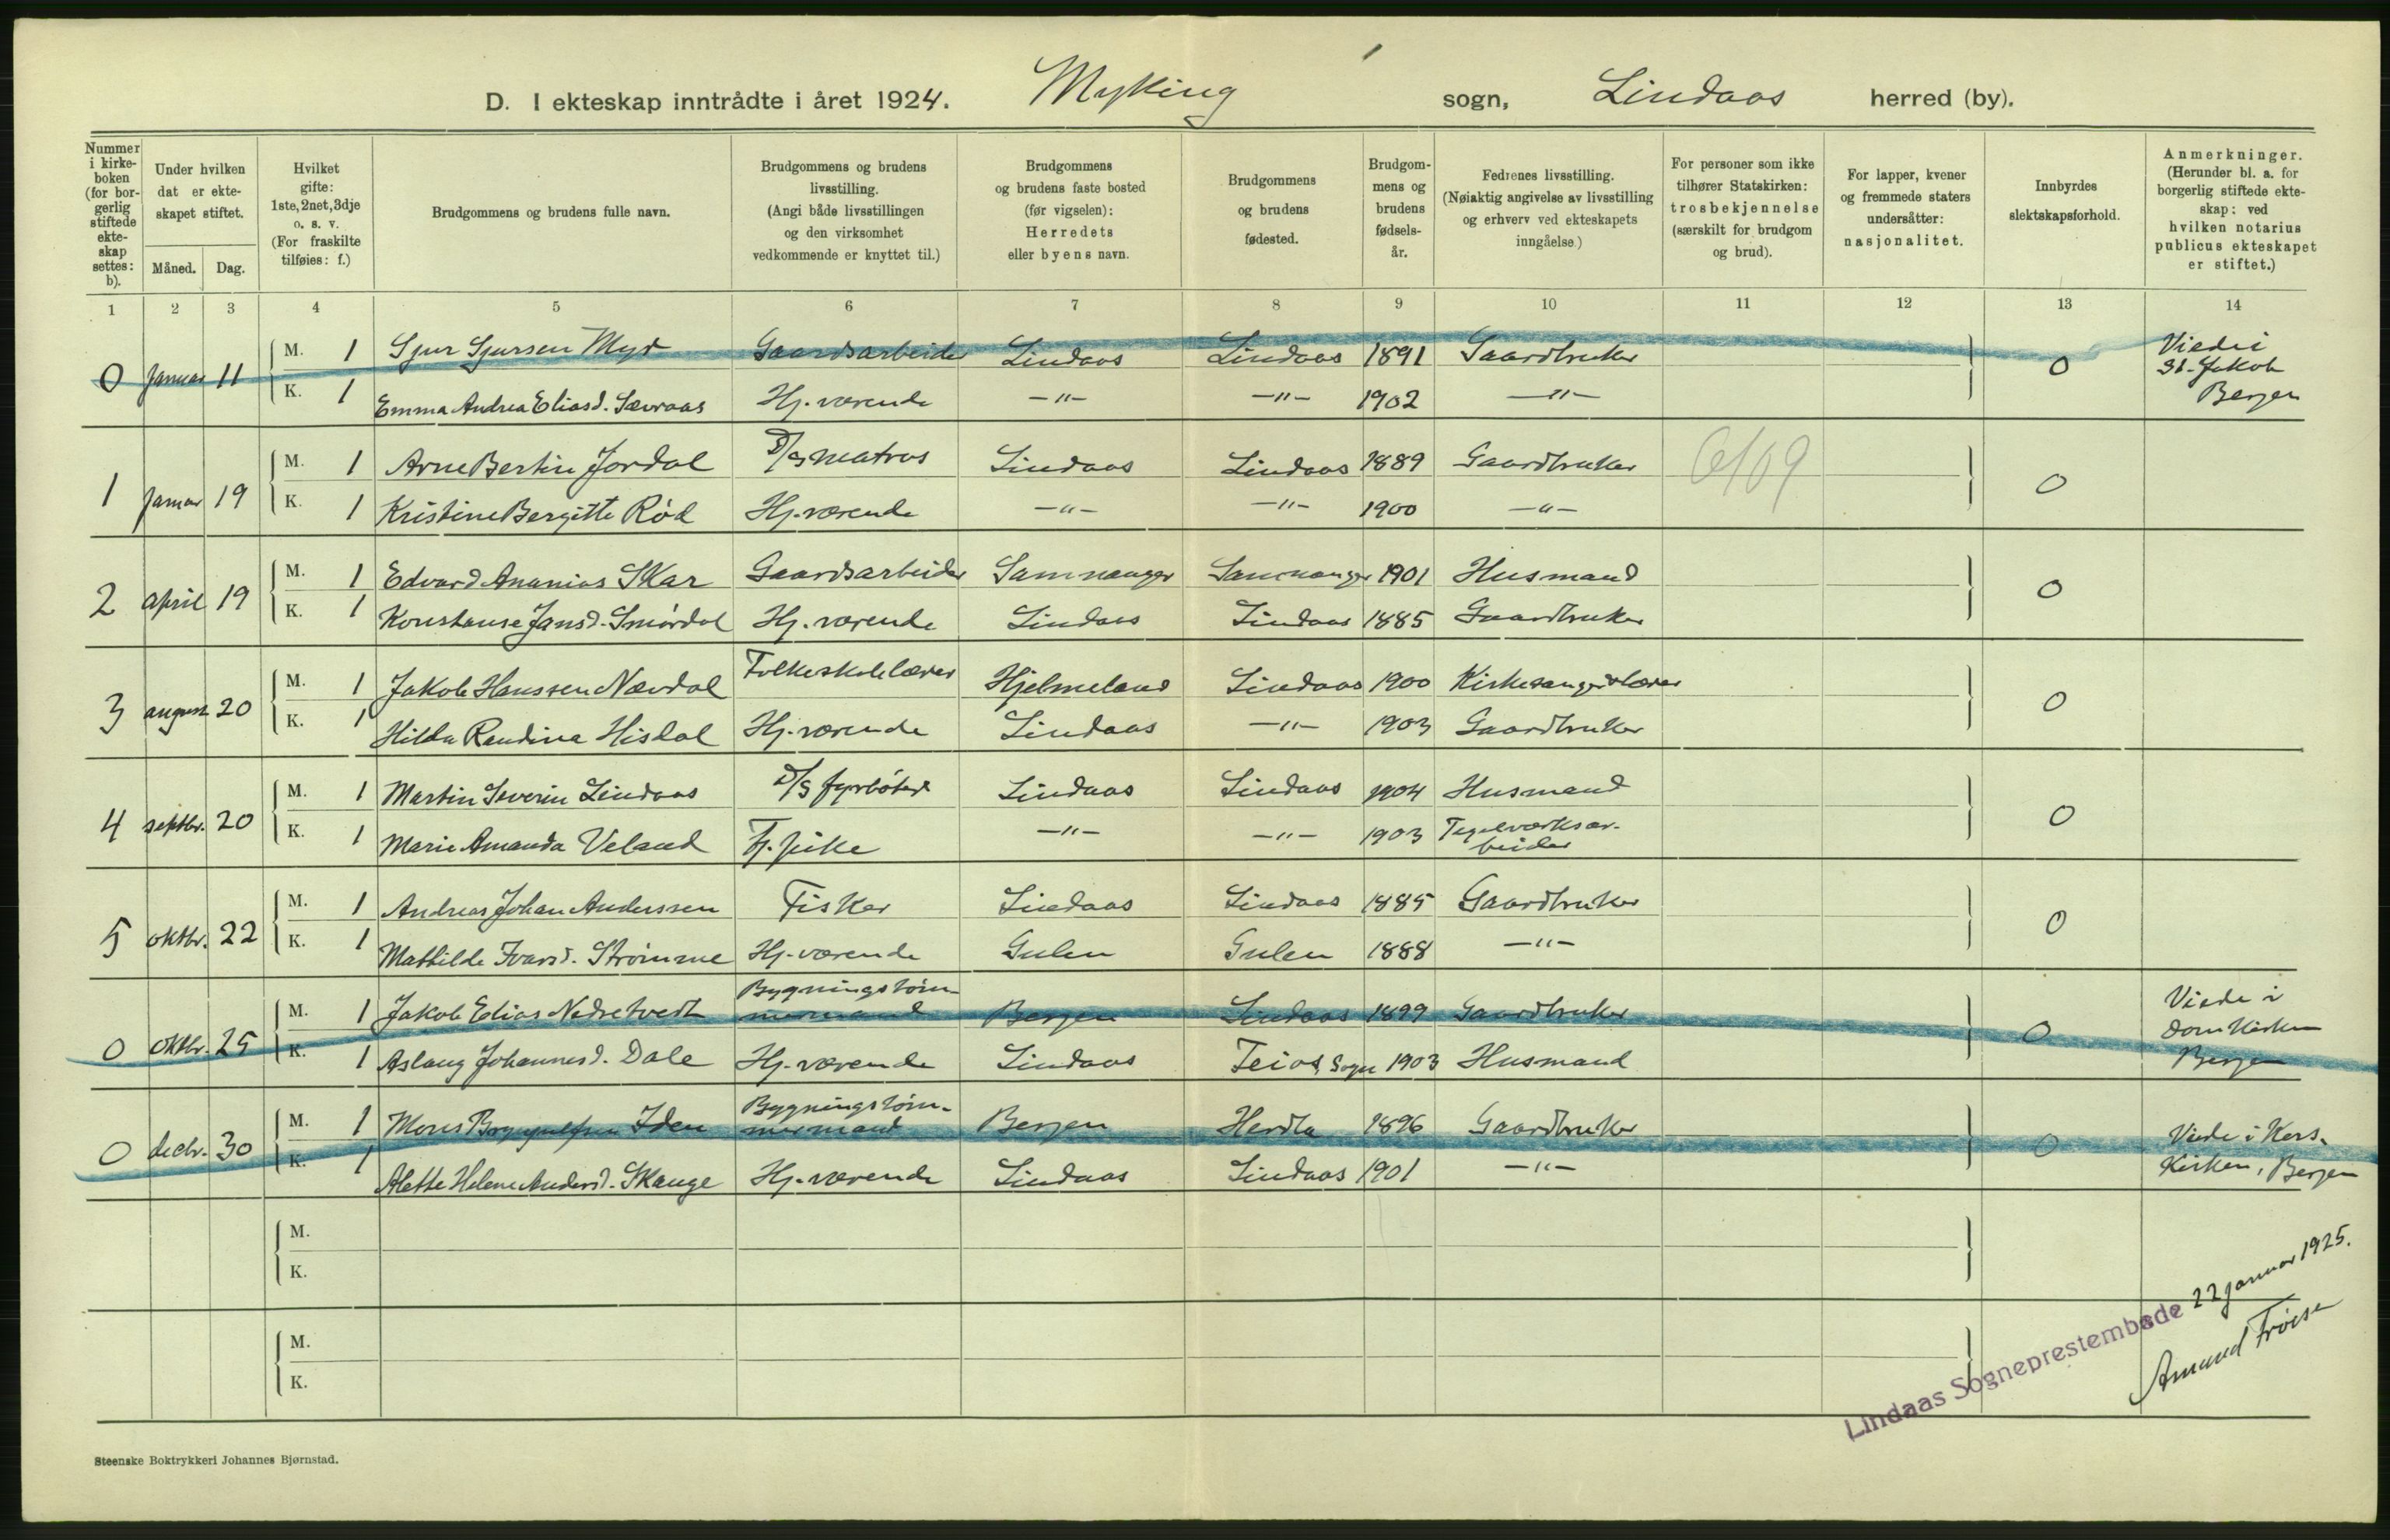 D. I ekteskap inntrådte i året 1924. Myking sogn, Lindaas herred (by).
Nummer i kirke- boken (for bor- gerlig stiftede ekte- skap settes: b).
Under hvilken dat er ekte- skapet stiftet.
Måned. Dag.
Hvilket gifte: 1ste, 2net, 3dje o. s. v. (For fraskilte tilføies: f.)
Brudgommens og brudens fulle navn.
Brudgommens og brudens livsstilling. (Angi både livsstillingen og den virksomhet vedkommende er knyttet til.)
Brudgommens og brudens faste bosted (før vigselen): Herredets eller byens navn.
Brudgommens og brudens fødested.
Brudgom- mens og brudens fødsels- år.
Fedrenes livsstilling. (Nøiaktig angivelse av livsstilling og erhverv ved ekteskapets inngåelse.)
For personer som ikke tilhører Statskirken: trosbekjennelse (særskilt for brudgom og brud).
For lapper, kvener og fremmede staters undersåtter: nasjonalitet.
Innbyrdes slektskapsforhold.
Anmerkninger. (Herunder bl. a. for borgerlig stiftede ekte- skap: ved hvilken notarius publicus ekteskapet er stiftet.)
1 2 3 4 5 6 7 8 9 10 11 12 13 14
0 Januar 11 M. 1 Sjur Sjursen Myr Gaardsarbeider Lindaas Lindaas 1891 Gaardbruker 0 Viede i St. Jakob Bergen
K. 1 Emma Andrea Eliasd. Sævraas Hj. værende —"— —"— 1902 —"—
1 Januar 19 M. 1 Arne Bertin Jordal D/S matros Lindaas Lindaas 1889 Gaardbruker 0
K. 1 Kristine Bergitte Rød Hj. værende —"— —"— 1900 —"—
2 april 19 M. 1 Edvard Ananias Skar Gaardsarbeider Samnanger Samnanger 1901 Husmand 0
K. 1 Konstanse Jansd. Smørdal Hj. værende Lindaas Lindaas 1885 Gaardbruker
3 august 20 M. 1 Jakob Hanssen Nævdal Folkeskolelærer Hjelmeland Lindaas 1900 Kirkesanger &lærer 0
K. 1 Hilda Randina Hisdal Hj. værende Lindaas —"— 1903 Gaardbruker
4 septbr. 20 M. 1 Martin Severin Lindaas D/S fyrbøter Lindaas Lindaas 1904 Husmand 0
K. 1 Marie Amanda Veland Tj. pike —"— —"— 1903 Tegelværksar- beider
5 oktbr. 22 M. 1 Andreas Johan Anderssen Fisker Lindaas Lindaas 1885 Gaardbruker 0
K. 1 Mathilde Ivarsd. Strømme Hj. værende Gulen Gulen 1888 —"—
0 oktbr. 25 M. 1 Jakob Elias Nedretvedt Bygningstøm- mermand Bergen Lindaas 1899 Gaardbruker 0 Viede i Domkirken Bergen
K. 1 Aslaug Johannesd. Dale Hj. værende Lindaas Feios, Sogn 1903 Husmand
0 decbr. 30 M. 1 Mons Brynjulfsen Iden Bygningstøm- mermand Bergen Herdla 1896 Gaardbruker 0 Viede i Kors- kirken, Bergen
K. 1 Alette Helene Andersd. Skauge Hj. værende Lindaas Lindaas 1901 —"—
M.
K.
M.
K.
Lindaas Sogneprestembede 22 januar 1925.
Amund
Steenske Boktrykkeri Johannes Bjørnstad.